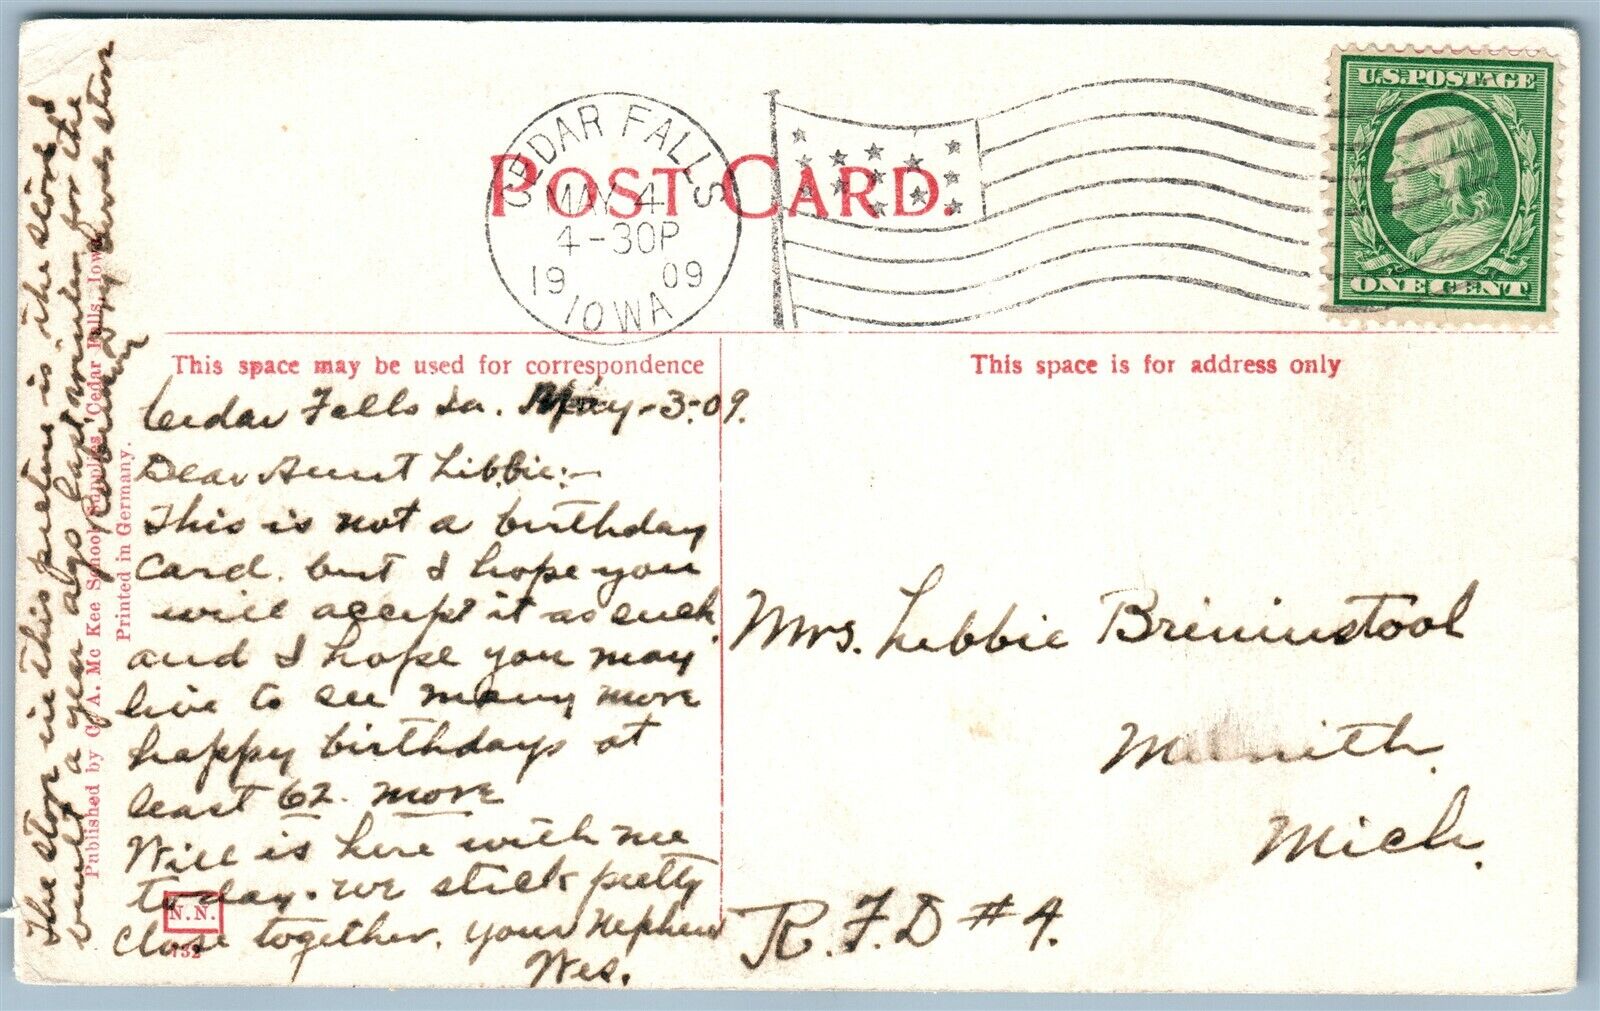 U.S. POSTAGE
ONE CENT
CEDAR FALLS
MAY 4
4-30P
19 09
IOWA
POST CARD.
This space may be used for correspondence
This space is for address only
Cedar Falls Ia. May-3-09.
Dear Aunt Libbie:-
This is not a birthday
card. but I hope you
will accept it as such
and I hope you may
live to see many more
happy birthdays at
least 62 more
Will is here with me
today. we stick pretty
close together. your Nephew
Wes.
Mrs. Libbie Breminstool
Mich.
R.F.D #4.
The stop in this picture is the store I
built a year ago last winter for the
Published by C. A. Mc Kee School Supplies, Cedar Falls, Iowa.
Printed in Germany.
N.N.
732